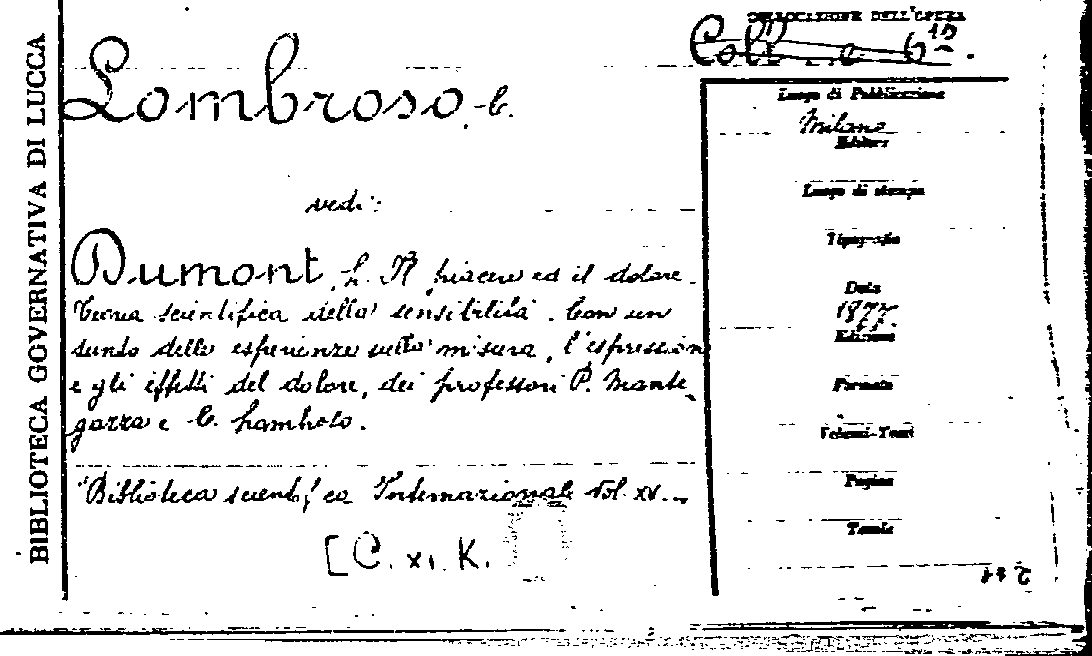 BIBLIOTECA GOVERNATIVA DI LUCCA
COLLOCAZIONE DELL'OPERA
Coll. 6
Lombroso, C.
vedi:
Dumont, L. Il piacere ed il dolore.
Teoria scientifica della sensibilità. Con un
sunto delle esperienze sulla misura, l'espression
e gli effetti del dolore, dei professori P. Mante
gazza e C. Lambroso.
Biblioteca scientifica Internazionale Vol. XV.
[C. XI. K.
Luogo di Pubblicazione
Milano
Editore
Luogo di stampa
Tipografia
Data
1877.
Edizione
Formato
Volumi-Tomi
Pagine
Tavole